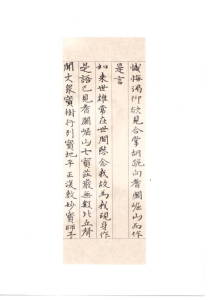 懺悔渴仰欲見合掌胡跪向耆闍崛山而作
是言
如來世雄常在世間愍念我故為我現身作
是語已見耆闍崛山七寶莊嚴無數比丘聲
聞大衆寶樹行列寶地平正復敷妙寶師子